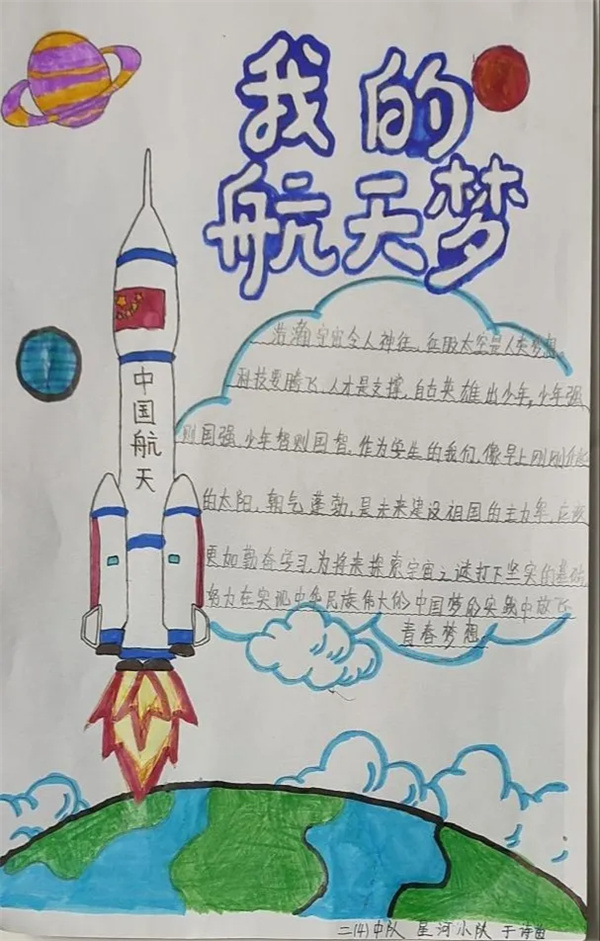 我的
航天梦
中国航天
浩瀚宇宙令人神往,征服太空是人类梦想。
科技要腾飞,人才是支撑,自古英雄出少年,少年强
则国强,少年智则国智。作为学生的我们,像早上刚刚
的太阳,朝气蓬勃,是未来建设祖国的主力军,应该
更加勤奋学习,为将来探索宇宙之谜打下坚实的基础,
努力在实现中华民族伟大的中国梦的实践中放飞
青春梦想。
二(4)中队 星河小队 于诗